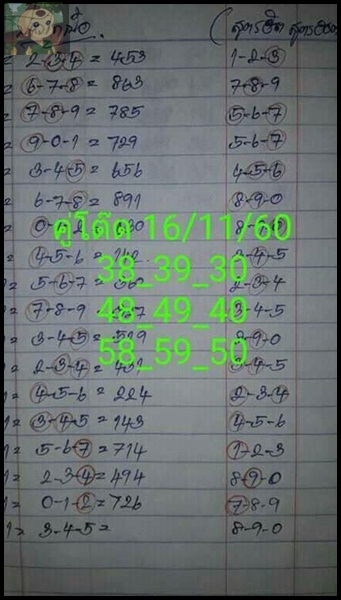 2-3-4 = 453 1-2-3
6-7-8 = 863 7-8-9
7-8-9 = 785 5-6-7
9-0-1 = 729 5-6-7
3-4-5 = 656 4-5-6
6-7-8 = 891 8-9-0
คู่โต๊ด 16/11/60
4-5-6 = 3-4-5
38_39_30
5-6-7 = 2-3-4
7-8-9 = 3-4-5
48_49_40
3-4-5 = 8-9-0
58_59_50
2-3-4 = 3-4-5
4-5-6 = 224 2-3-4
3-4-5 = 143 4-5-6
5-6-7 = 714 1-2-3
2-3-4 = 494 8-9-0
0-1-2 = 726 7-8-9
3-4-5 = 8-9-0